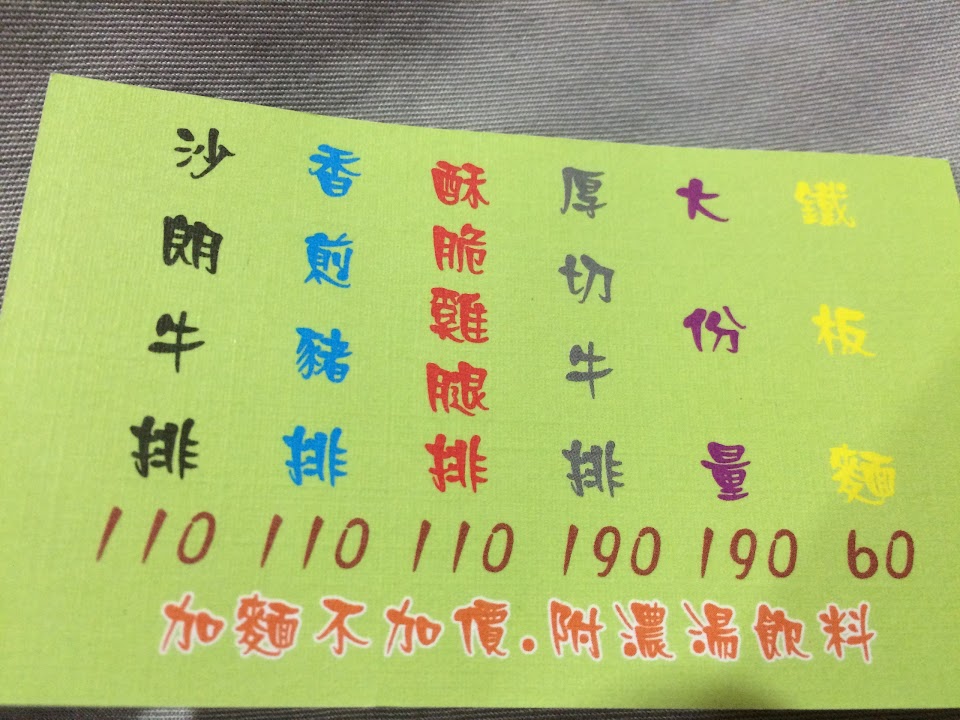 沙朗牛排
香煎豬排
酥脆雞腿排
厚切牛排
大份量
鐵板麵
110 110 110 190 190 60
加麵不加價.附濃湯飲料